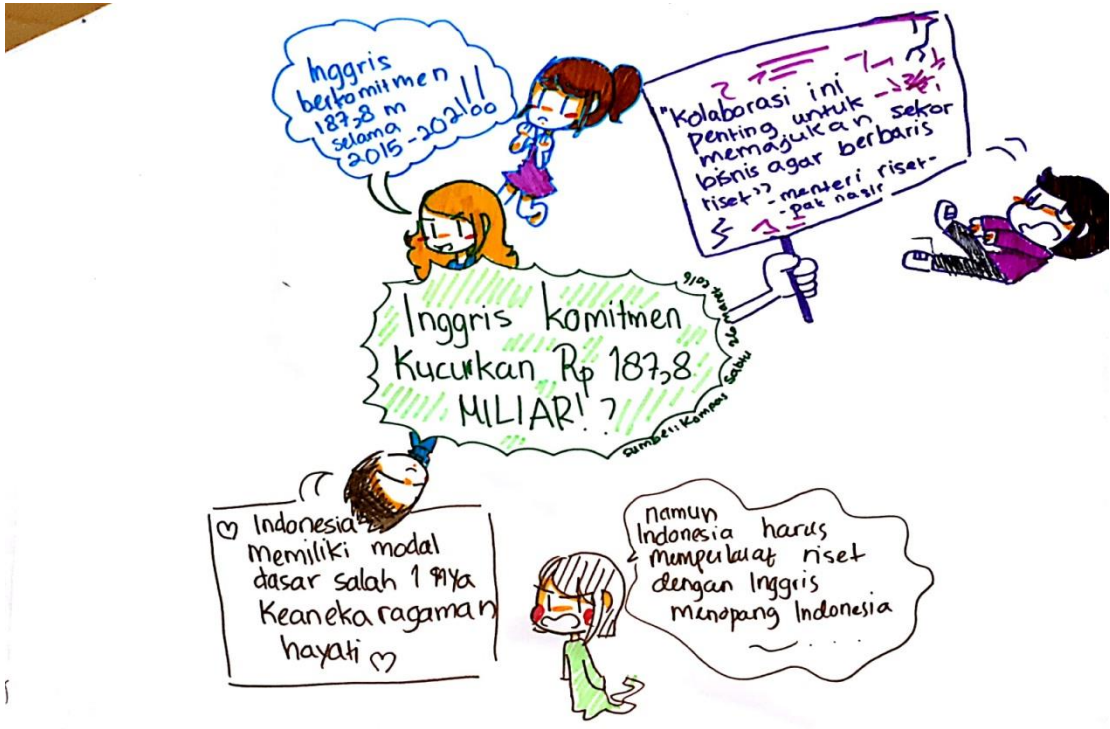 Inggris
berkomitmen
187,8 m
selama
2015-2021!!
"Kolaborasi ini
penting untuk
memajukan sekor
bisnis agar berbaris
riset"
- menteri riset-
- pak nasir
Inggris komitmen
Kucurkan Rp 187,8
MILIAR!?
sumber: Kompas Sabtu 26 maret 2016
♡ Indonesia
memiliki modal
dasar salah 1 nya
Keanekaragaman
hayati ♡
namun
Indonesia harus
memperkuat riset
dengan Inggris
menopang Indonesia